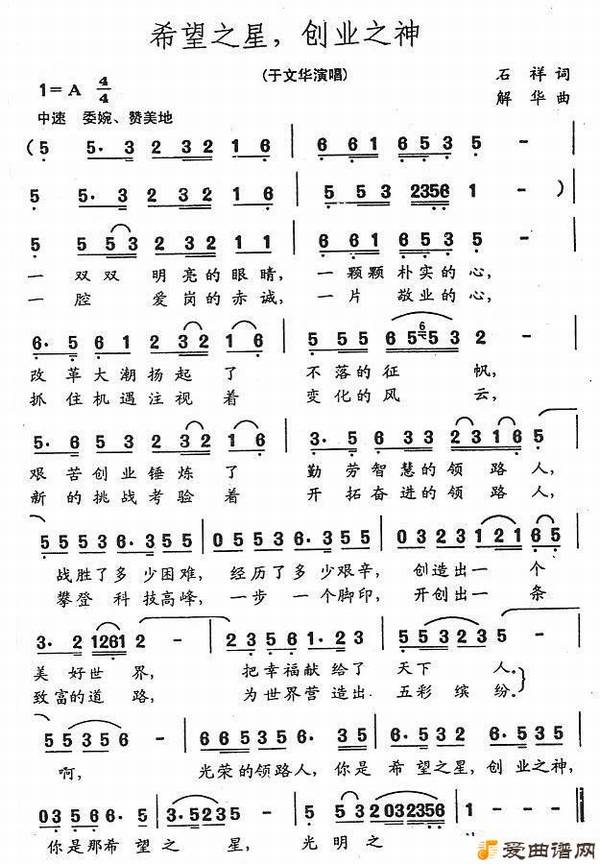 希望之星，创业之神
(于文华演唱)
1=A 4/4
石祥词
解华曲
中速 委婉、赞美地
(5 5·3 2 32 1 6 | 6 61 6 53 |
5 5·3 2 32 1 6 | 5 53 2356 1 - )
5 553 2 32 1 6 | 6 61 6·53 |
一 双双 明亮的眼睛， 一颗颗朴实的心，
一 腔 爱岗的赤诚， 一片 敬业的心，
6·5 61 2 32 1 6 | 555 6 5553 2 - |
改革大潮扬起了 不落的征 帆，
抓住机遇注视着 变化的风 云，
5·6 53 2 32 1 6 | 3·5 66 2316 5 -
艰苦创业锤炼了 勤劳智慧的领路人，
新的挑战考验着 开拓奋进的领路人，
5553 6·355 | 0553 6·355 | 0323 12165 |
战胜了多少困难， 经历了多少艰辛， 创造出一 个
攀登科技高峰， 一步一个脚印， 开创出一 条
3·2 1261 2 - | 2356 1·32 | 553523 - |
美好世界， 把幸福献给了 天下 人。
致富的道路， 为世界营造出 五彩缤纷。
55356 - | 665356 5·3 | 23 5 6·535 |
啊， 光荣的领路人，你是 希望之星，创业之神，
035 76 5 | 3·5235 | 035 2032356 | 1 - - - ||
你是那希望之 星， 光明之
爱曲谱网